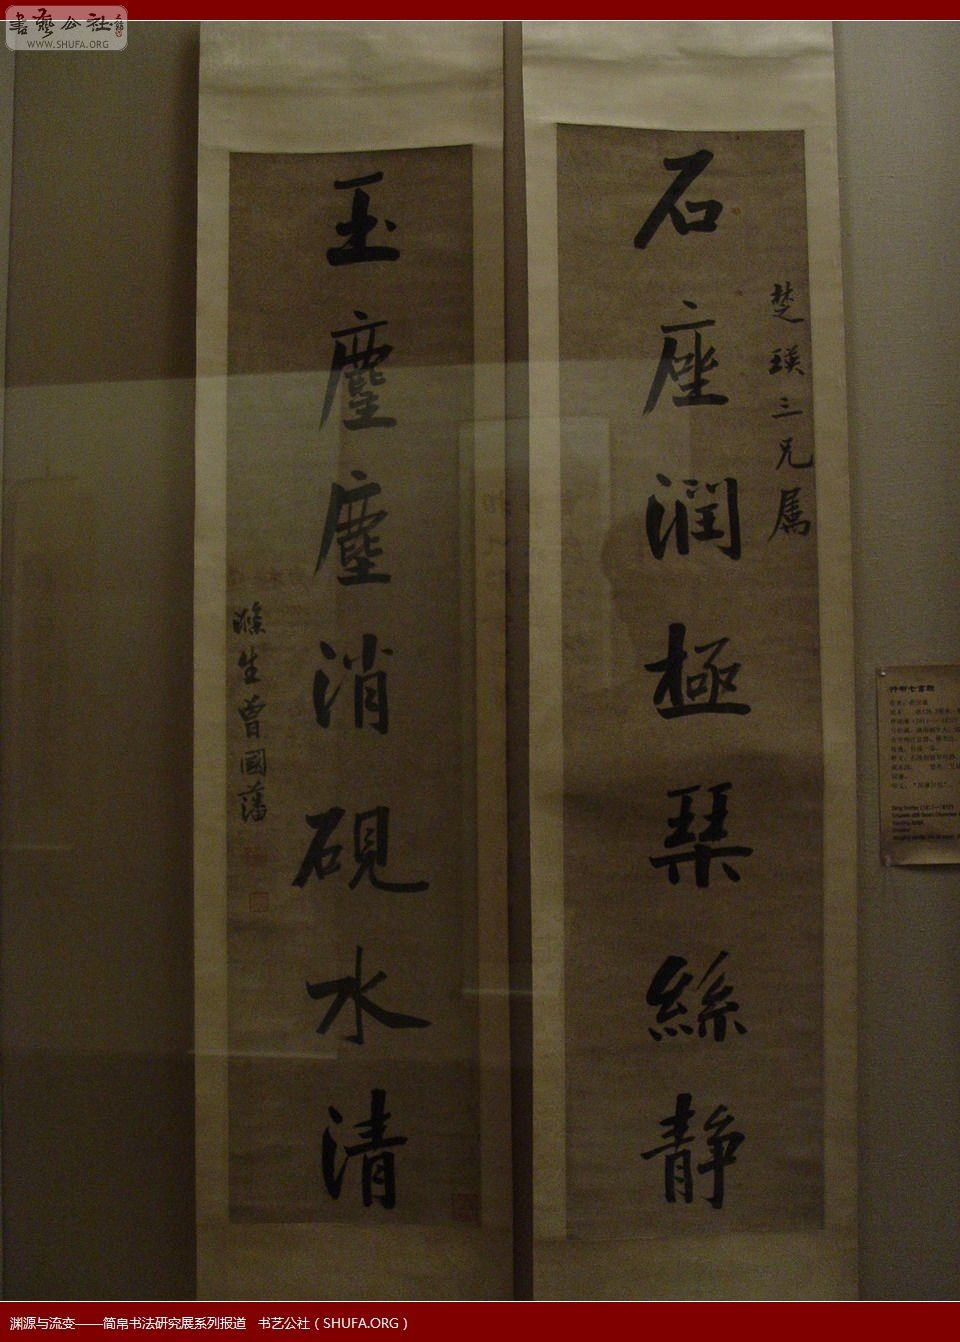 書藝公社
WWW.SHUFA.ORG
石座潤極琹絲静
楚瑛三兄属
玉麈塵消硯水清
滌生曾國藩
行书七言联
渊源与流变——简帛书法研究展系列报道 书艺公社（SHUFA.ORG）